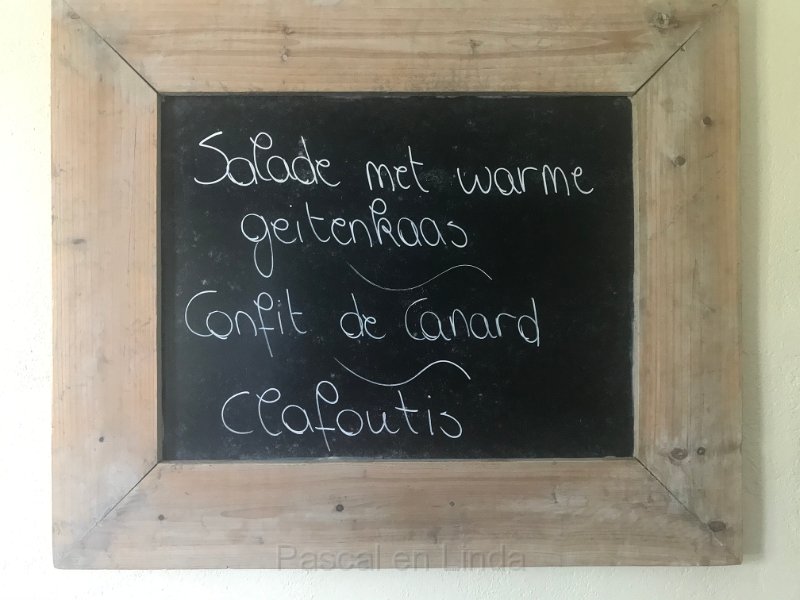 Salade met warme
geitenkaas
Confit de Canard
Clafoutis
Pascal en Linda